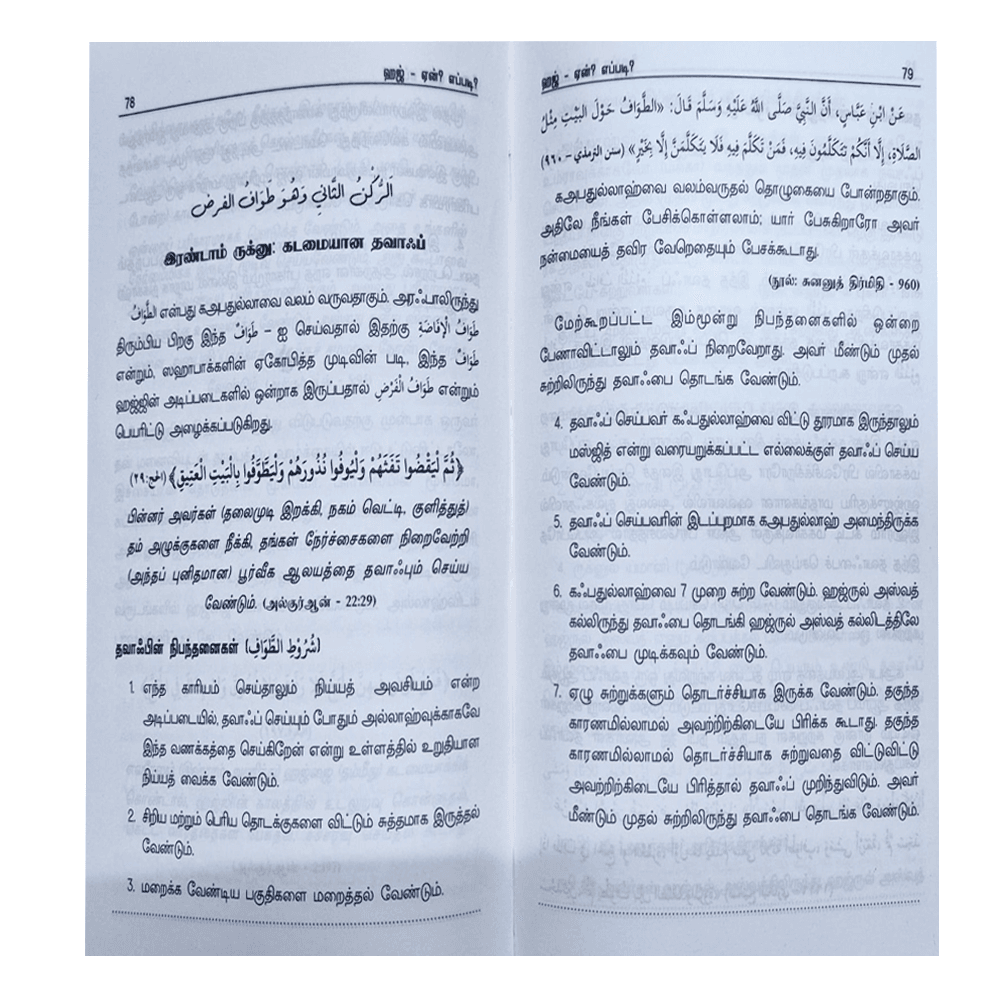 ஹஜ் - ஏன்? எப்படி?
78
الرُّكْنُ الثَّانِي وَهُوَ طَوَافُ الفَرضِ
இரண்டாம் ருக்னு: கடமையான தவாஃப்
الطَّوَافُ என்பது கஅபதுல்லாவை வலம் வருவதாகும். அரஃபாலிருந்து
திரும்பிய பிறகு இந்த طَوَافُ – ஐ செய்வதால் இதற்கு طَوَافُ الْإِفَاضَةِ
என்றும், ஸஹாபாக்களின் ஏகோபித்த முடிவின் படி, இந்த طَوَافُ
ஹஜ்ஜின் அடிப்படைகளில் ஒன்றாக இருப்பதால் طَوَافُ الْفَرْضِ என்றும்
பெயரிட்டு அழைக்கப்படுகிறது.
﴿ثُمَّ لْيَقْضُوا تَفَثَهُمْ وَلْيُوفُوا نُذُورَهُمْ وَلْيَطَّوَّفُوا بِالْبَيْتِ الْعَتِيقِ﴾ (الحج:٢٩)
பின்னர் அவர்கள் (தலைமுடி இறக்கி, நகம் வெட்டி, குளித்துத்)
தம் அழுக்குகளை நீக்கி, தங்கள் நேர்ச்சைகளை நிறைவேற்றி
(அந்தப் புனிதமான) பூர்வீக ஆலயத்தை தவாஃபும் செய்ய
வேண்டும். (அல்குர்ஆன் - 22:29)
தவாஃபின் நிபந்தனைகள் (شُرُوْطِ الطَّوَافِ)
1. எந்த காரியம் செய்தாலும் நிய்யத் அவசியம் என்ற
அடிப்படையில், தவாஃப் செய்யும் போதும் அல்லாஹ்வுக்காகவே
இந்த வணக்கத்தை செய்கிறேன் என்று உள்ளத்தில் உறுதியான
நிய்யத் வைக்க வேண்டும்.
2. சிறிய மற்றும் பெரிய தொடக்குகளை விட்டும் சுத்தமாக இருத்தல்
வேண்டும்.
3. மறைக்க வேண்டிய பகுதிகளை மறைத்தல் வேண்டும்.
ஹஜ் - ஏன்? எப்படி?
79
عَنْ ابْنِ عَبَّاسٍ، أَنَّ النَّبِيَّ صَلَّى اللهُ عَلَيْهِ وَسَلَّمَ قَالَ: «الطَّوَافُ حَوْلَ البَيْتِ مِثْلُ
الصَّلَاةِ، إِلَّا أَنَّكُمْ تَتَكَلَّمُونَ فِيهِ، فَمَنْ تَكَلَّمَ فِيهِ فَلَا يَتَكَلَّمَنَّ إِلَّا بِخَيْرٍ» (سنن الترمذي – ٩٦٠)
கஅபதுல்லாஹ்வை வலம்வருதல் தொழுகையை போன்றதாகும்.
அதிலே நீங்கள் பேசிக்கொள்ளலாம்; யார் பேசுகிறாரோ அவர்
நன்மையைத் தவிர வேறெதையும் பேசக்கூடாது.
(நூல்: சுனனுத் திர்மிதி - 960)
மேற்கூறப்பட்ட இம்மூன்று நிபந்தனைகளில் ஒன்றை
பேணாவிட்டாலும் தவாஃப் நிறைவேறாது. அவர் மீண்டும் முதல்
சுற்றிலிருந்து தவாஃபை தொடங்க வேண்டும்.
4. தவாஃப் செய்பவர் கஃபதுல்லாஹ்வை விட்டு தூரமாக இருந்தாலும்
மஸ்ஜித் என்று வரையறுக்கப்பட்ட எல்லைக்குள் தவாஃப் செய்ய
வேண்டும்.
5. தவாஃப் செய்பவரின் இடப்புறமாக கஅபதுல்லாஹ் அமைந்திருக்க
வேண்டும்.
6. கஃபதுல்லாஹ்வை 7 முறை சுற்ற வேண்டும். ஹஜ்ருல் அஸ்வத்
கல்லிருந்து தவாஃபை தொடங்கி ஹஜ்ருல் அஸ்வத் கல்லிடத்திலே
தவாஃபை முடிக்கவும் வேண்டும்.
7. ஏழு சுற்றுக்களும் தொடர்ச்சியாக இருக்க வேண்டும். தகுந்த
காரணமில்லாமல் அவற்றிற்கிடையே பிரிக்க கூடாது. தகுந்த
காரணமில்லாமல் தொடர்ச்சியாக சுற்றுவதை விட்டுவிட்டு
அவற்றிற்கிடையே பிரித்தால் தவாஃப் முறிந்துவிடும். அவர்
மீண்டும் முதல் சுற்றிலிருந்து தவாஃபை தொடங்க வேண்டும்.